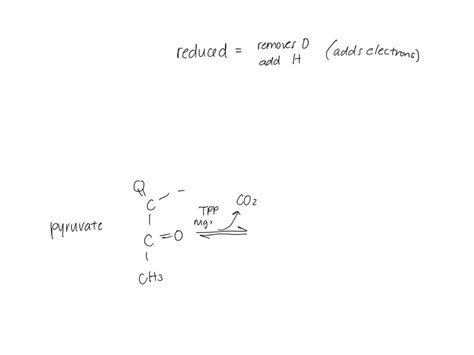 reduced = removes O (adds electrons)
add H
O
C
TPP
Mg,
CO2
pyruvate
C=O
CH3